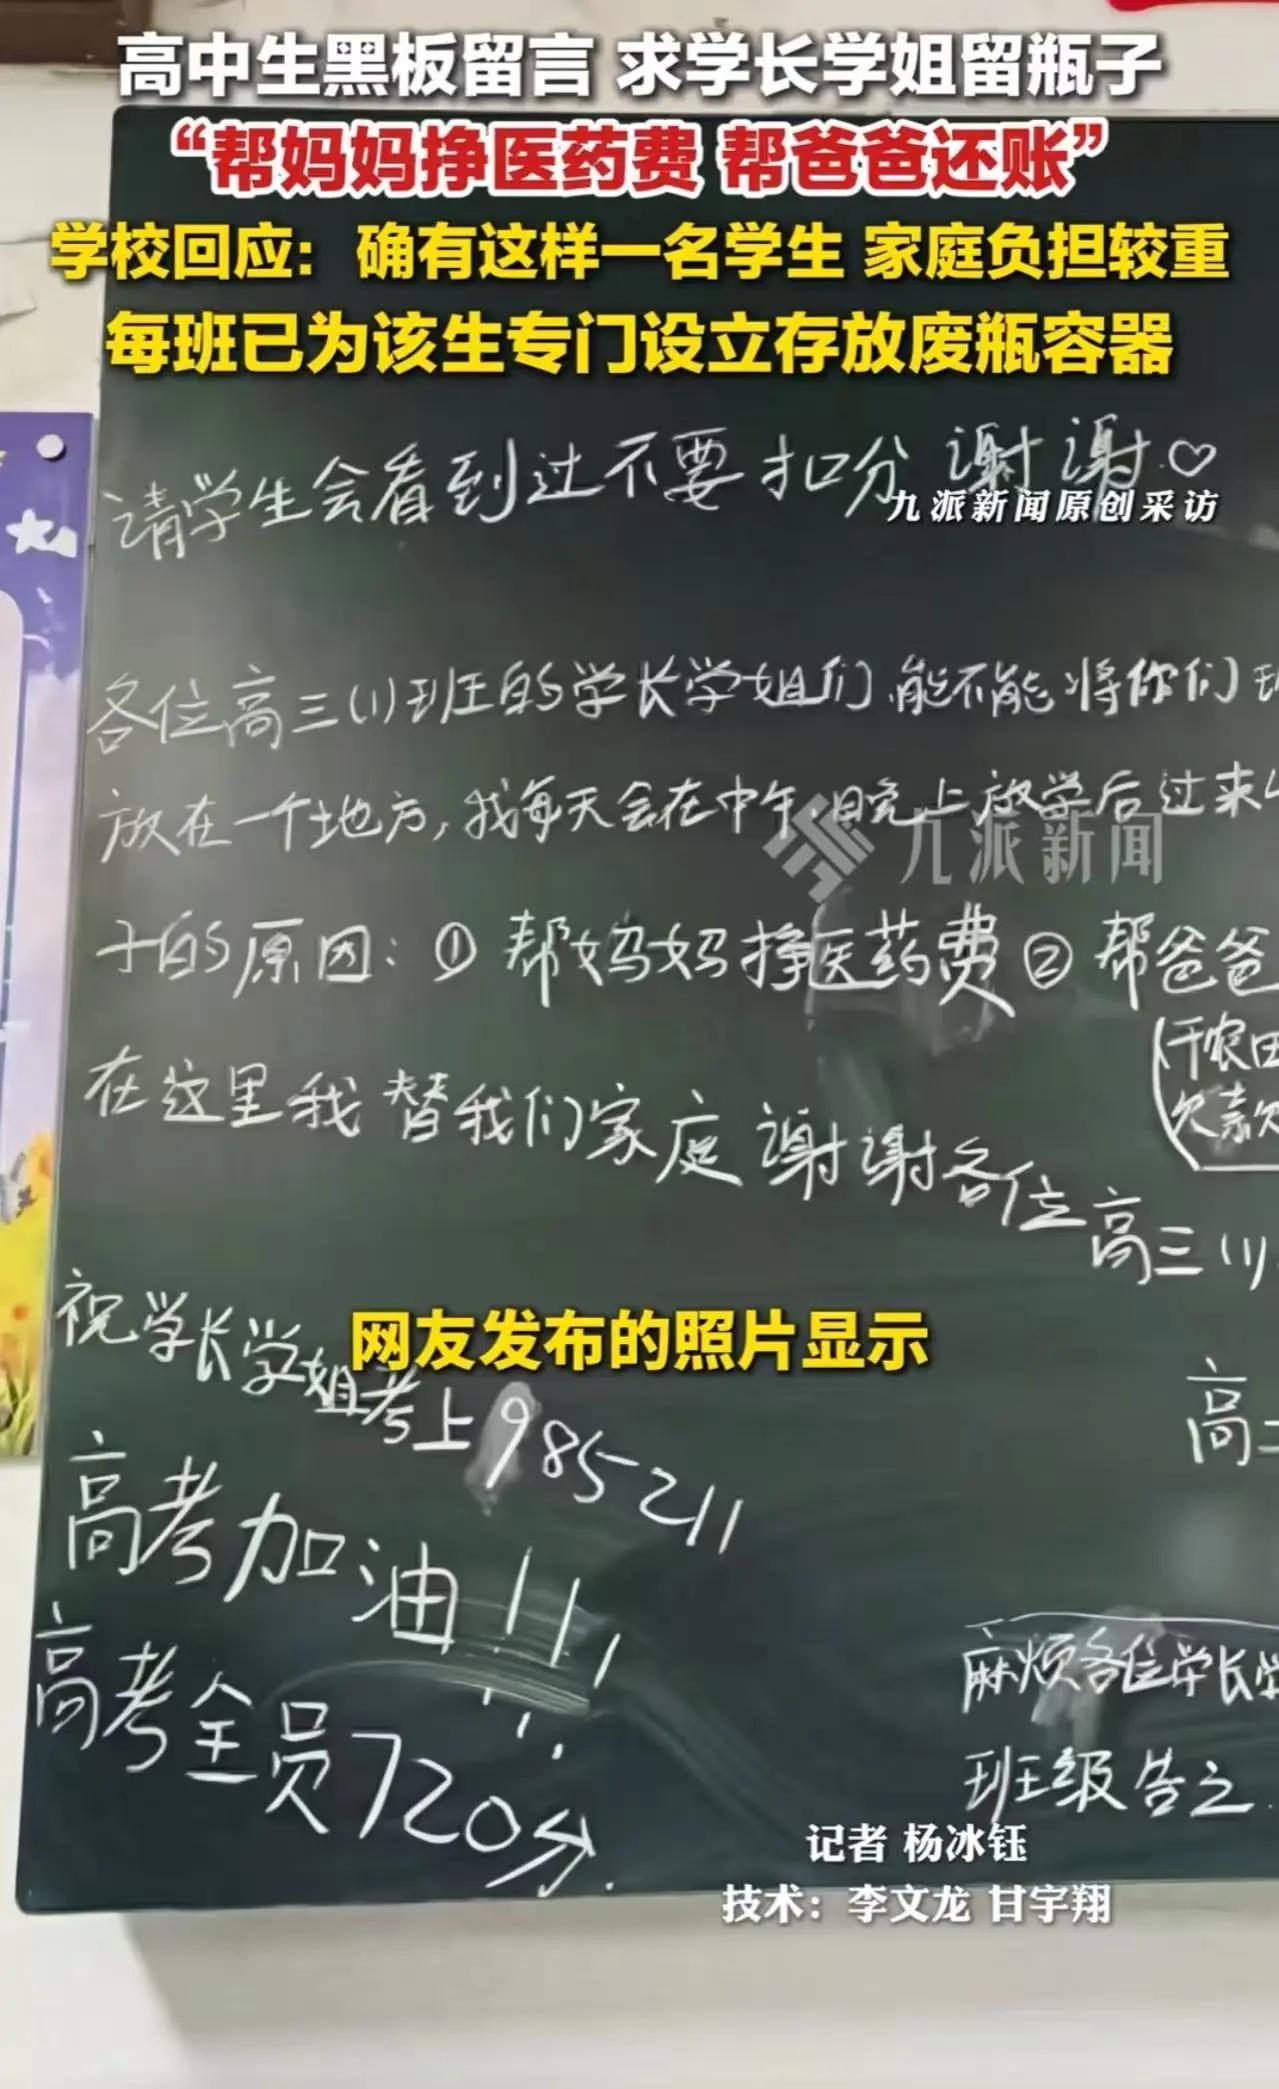 高中生黑板留言 求学长学姐留瓶子
“帮妈妈挣医药费 帮爸爸还账”
学校回应：确有这样一名学生 家庭负担较重
每班已为该生专门设立存放废瓶容器
请学生会看到过不要扣分 谢谢.♡
九派新闻原创采访
各位高三(1)班的学长学姐们,能不能将你们
放在一个地方,我每天会在中午 晚上放学后过来
九派新闻
子的原因：① 帮妈妈挣医药费 ② 帮爸爸
(干农田
欠款
在这里我替我们家庭谢谢各位高三(1)
网友发布的照片显示
祝学长学姐考上985 211
高
高考加油!!!
高考全员720分.
麻烦各位学长
班级告之.
记者 杨冰钰
技术：李文龙 甘宇翔